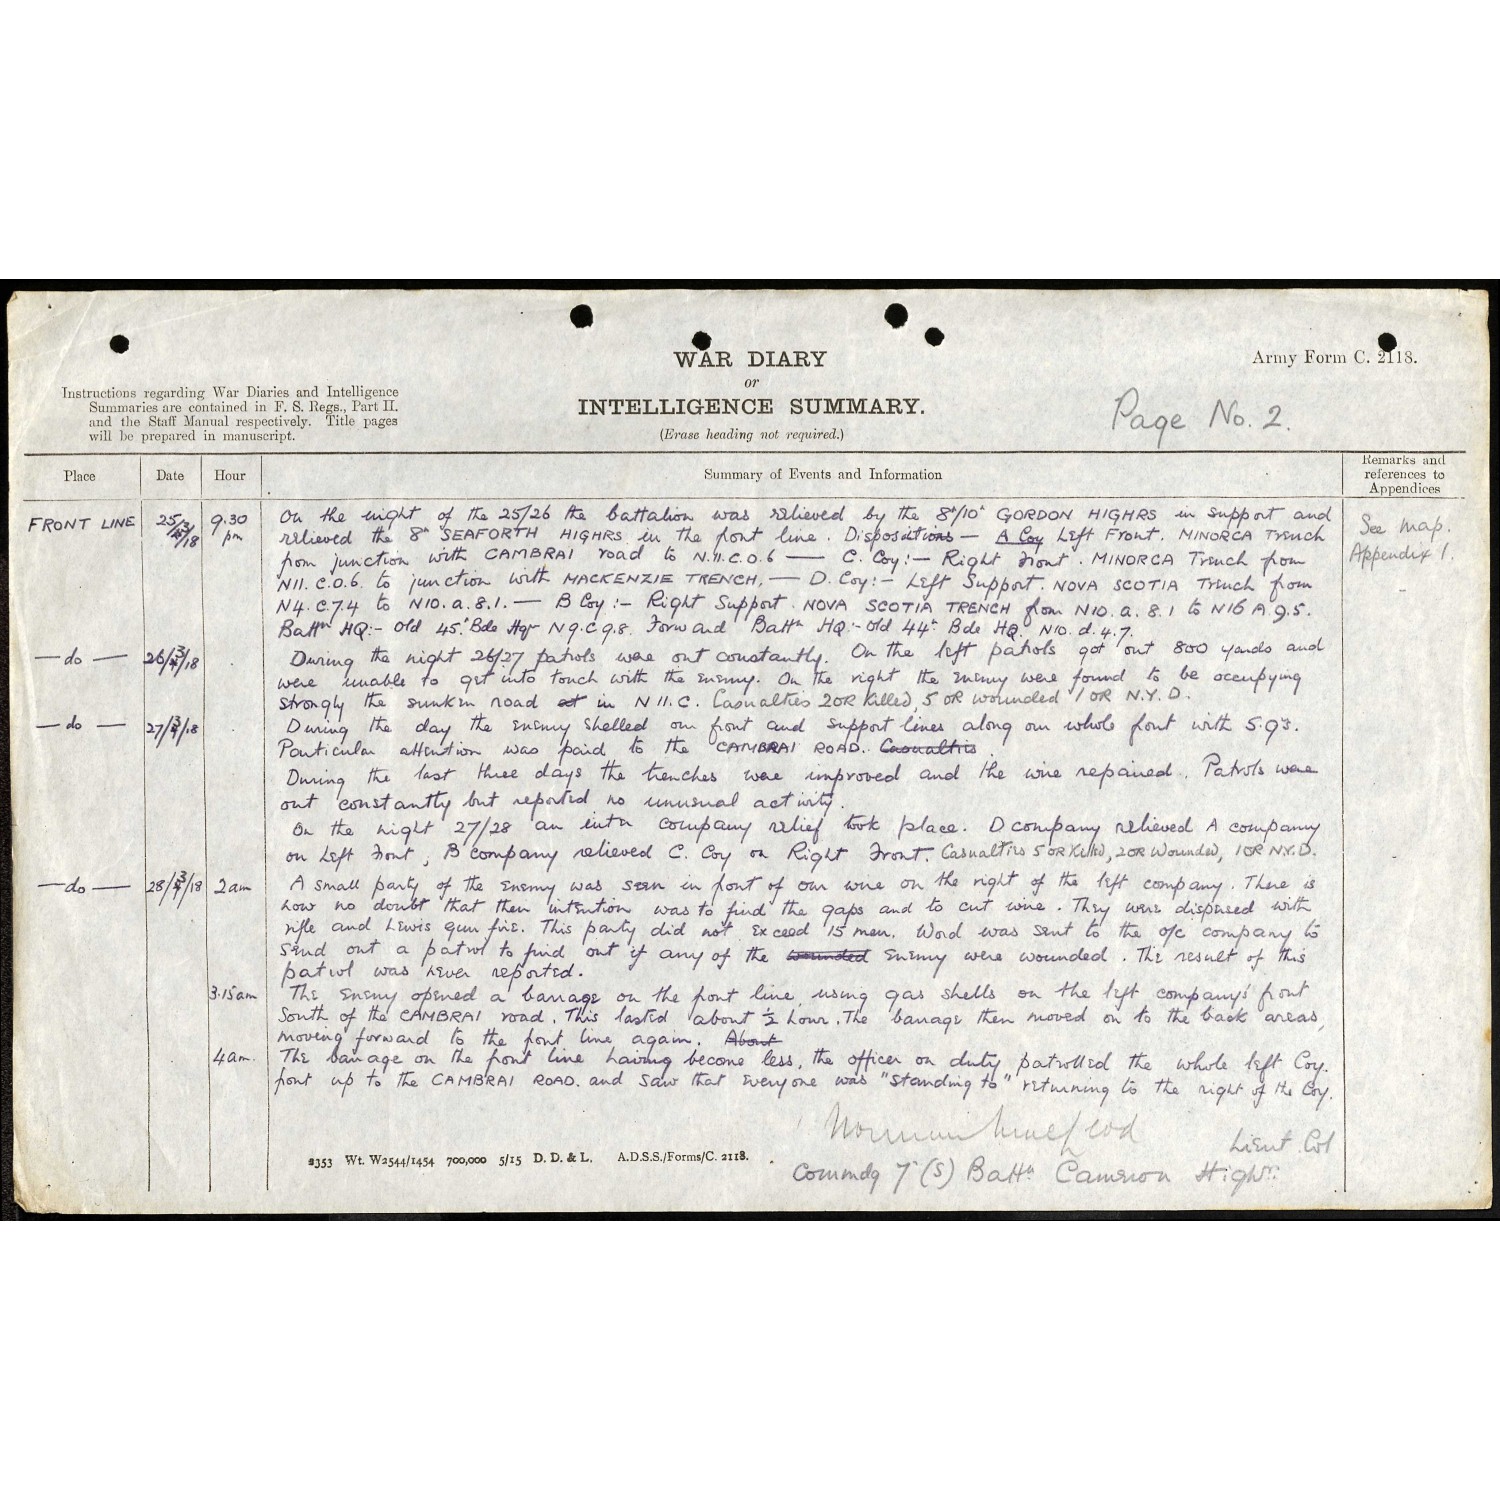 WAR DIARY
or
INTELLIGENCE SUMMARY.
(Erase heading not required.)
Army Form C. 2118.
Instructions regarding War Diaries and Intelligence
Summaries are contained in F. S. Regs., Part II.
and the Staff Manual respectively. Title pages
will be prepared in manuscript.
Page No. 2.
Place Date Hour Summary of Events and Information Remarks and references to Appendices
FRONT LINE 25/3/18 9.30 pm On the night of the 25/26 the battalion was relieved by the 8th/10th GORDON HIGHRS in support and
relieved the 8th SEAFORTH HIGHRS. in the front line. Dispositions — A Coy Left Front. MINORCA Trench
from junction with CAMBRAI road to N.11.C.0.6 — C. Coy:— Right Front. MINORCA Trench from
N11.C.0.6. to junction with MACKENZIE TRENCH. — D. Coy:- Left Support. NOVA SCOTIA Trench from
N4.C.7.4 to N10.a.8.1. — B Coy:- Right Support. NOVA SCOTIA TRENCH from N10.a.8.1 to N16 A.9.5.
Battn HQ:- Old 45th Bde Hqr N9.C.9.8. Forward Battn HQ:- Old 44th Bde HQ. N10.d.4.7.
See map.
Appendix 1.
—do— 26/3/18 During the night 26/27 patrols were out constantly. On the left patrols got out 800 yards and
were unable to get into touch with the enemy. On the right the enemy were found to be occupying
strongly the sunken road at in N11.C. Casualties 2 OR Killed, 5 OR wounded 1 OR N.Y.D.
—do— 27/3/18 During the day the enemy shelled our front and support lines along our whole front with 5.9's.
Particular attention was paid to the CAMBRAI ROAD. Casualties
During the last three days the trenches were improved and the wire repaired. Patrols were
out constantly but reported no unusual activity.
On the night 27/28 an inter company relief took place. D company relieved A company
on Left Front, B company relieved C. Coy on Right Front. Casualties 5 OR Killed, 2 OR Wounded, 1 OR N.Y.D.
—do— 28/3/18 2 am A small party of the enemy was seen in front of our wire on the right of the left company. There is
now no doubt that their intention was to find the gaps and to cut wire. They were dispersed with
rifle and Lewis gun fire. This party did not exceed 15 men. Word was sent to the o/c company to
send out a patrol to find out if any of the wounded enemy were wounded. The result of this
patrol was never reported.
3.15am The enemy opened a barrage on the front line, using gas shells on the left company's front
South of the CAMBRAI road. This lasted about ½ hour. The barrage then moved on to the back areas,
moving forward to the front line again. About
4am. The barrage on the front line having become less, the officer on duty patrolled the whole left Coy.
front up to the CAMBRAI ROAD. and saw that everyone was "standing to" returning to the right of the Coy.
Norman Macleod
Lieut Col
Commdg 7th (S) Battn Cameron Highrs.
2353 Wt. W2544/1454 700,000 5/15 D. D. & L. A.D.S.S./Forms/C. 2118.